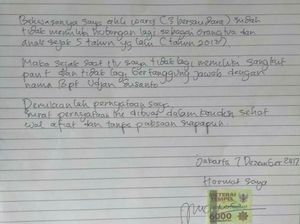 Bahwasanya saya ahli waris (3 bersaudara) sudah
tidak memiliki hubungan lagi sebagai orangtua dan
anak sejak 5 tahun yg lalu (tahun 2012)
Maka sejak saat itu saya tidak lagi memiliki sangkut
paut dan tidak lagi bertanggung jawab dengan
nama Bpt Udjan Susanto
Demikianlah pernyataan saya
surat pernyataan ini dibuat dalam kondisi sehat
wal afiat dan tanpa paksaan siapapun
Jakarta 7 Desember 2017
Hormat saya
METERAI
TEMPEL
6000